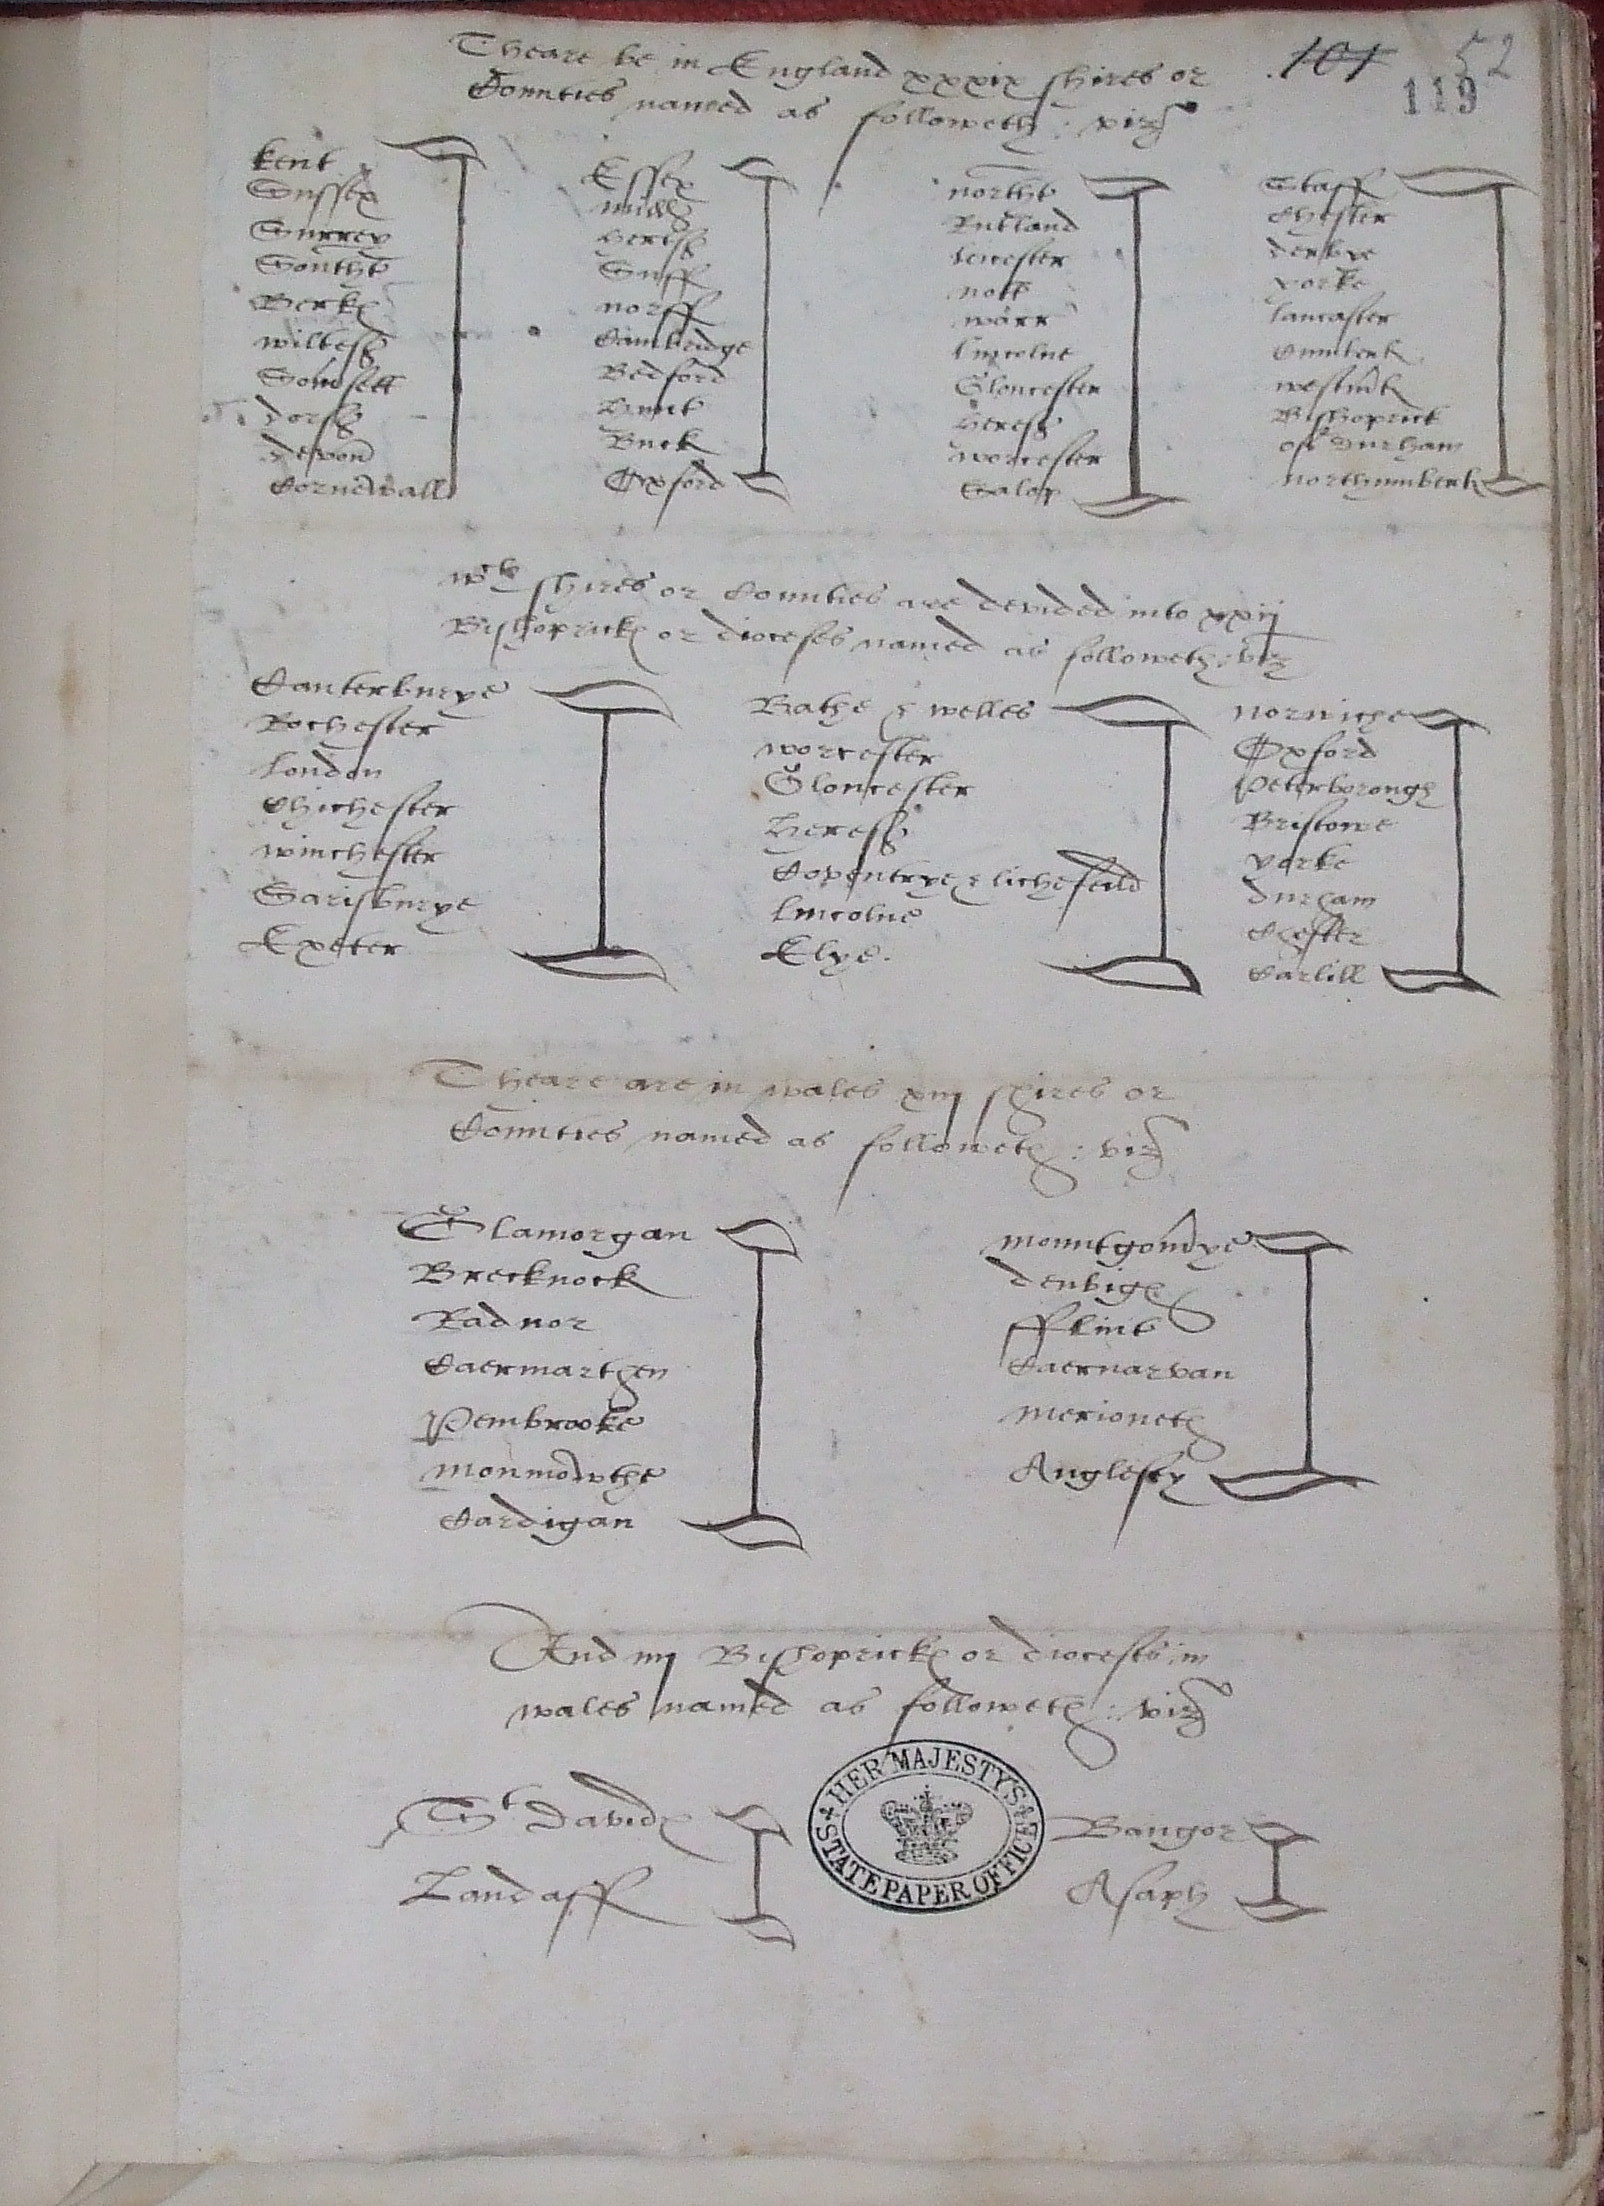 Theare be in England xxxix shires or
Counties named as followeth: viz
101 52
119
Kent
Sussex
Surrey
Southt
Berk
Wiltesh
Somsett
Dors
Devon
Cornewall
Essex
Midd
Hertf
Suff
Norff
Cambridge
Bedford
Hunt
Buck
Oxford
Northt
Rutland
Leicester
Nott
Warr
Lincolne
Gloucester
Heref
Worcester
Salop
Staff
Chester
Derbye
Yorke
Lancaster
Cumberl
Westml
Bishoprick
of Durham
Northumberl
wch shires or Counties are devided into xxij
Bishopricks or dioceses named as followeth: viz
Canterburye
Rochester
London
Chichester
Winchester
Sarisburye
Exeter
Bathe & Welles
Worcester
Gloucester
Heref
Coventrye & Lichefeild
Lincolne
Elye.
Norwiche
Oxford
Peterborough
Bristowe
Yorke
Durham
Chester
Carlill
Theare are in Wales xiij shires or
Counties named as followeth: viz
Glamorgan
Brecknock
Radnor
Caermarthen
Pembrooke
Monmowthe
Cardigan
Mountgomrye
Denbigh
fflint
Caernarvan
Merioneth
Anglesey
And iiij Bishopricks or dioceses in
Wales named as followeth: viz
St Davids
Landaff
Bangor
Asaph
HER MAJESTY'S
STATE PAPER OFFICE